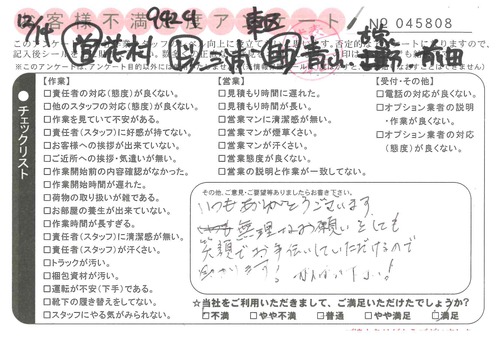 お客様不満足度アンケート
No 045808
12/14
【作業】
□責任者の対応(態度)が良くない。
□他のスタッフの対応(態度)が良くない。
□作業を見ていて不安がある。
□責任者(スタッフ)に好感が持てない。
□お客様への挨拶が出来ていない。
□ご近所への挨拶・気遣いが無い。
□作業開始前の内容確認がなかった。
□作業開始時間が遅れた。
□荷物の取り扱いが雑である。
□お部屋の養生が出来ていない。
□作業時間が長すぎる。
□責任者(スタッフ)に清潔感が無い。
□責任者(スタッフ)が汗くさい。
□トラックが汚い。
□梱包資材が汚い。
□運転が不安(下手)である。
□靴下の履き替えをしてない。
□スタッフにやる気がみられない。
【営業】
□見積もり時間に遅れた。
□見積もり時間が長い。
□営業マンに清潔感が無い。
□営業マンが煙草くさい。
□営業マンが汗くさい。
□営業態度が良くない。
□営業の説明と作業が一致してない。
【受付・その他】
□電話の対応が良くない。
□オプション業者の説明
・作業が良くない。
□オプション業者の対応
(態度)が良くない。
チェックリスト
その他、ご意見・ご要望等ありましたらお書き下さい。
いつもありがとうございます
無理なお願いをしても
笑顔でお手伝いしていただけるので
☆当社をご利用いただきまして、ご満足いただけたでしょうか?
□不満 □やや不満 □普通 □やや満足 □満足